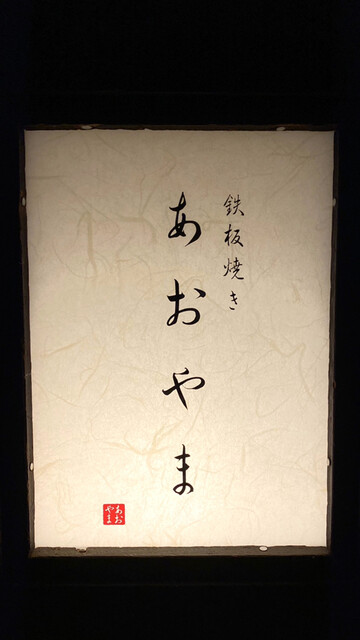 鉄板焼き
あおやま
あお
やま